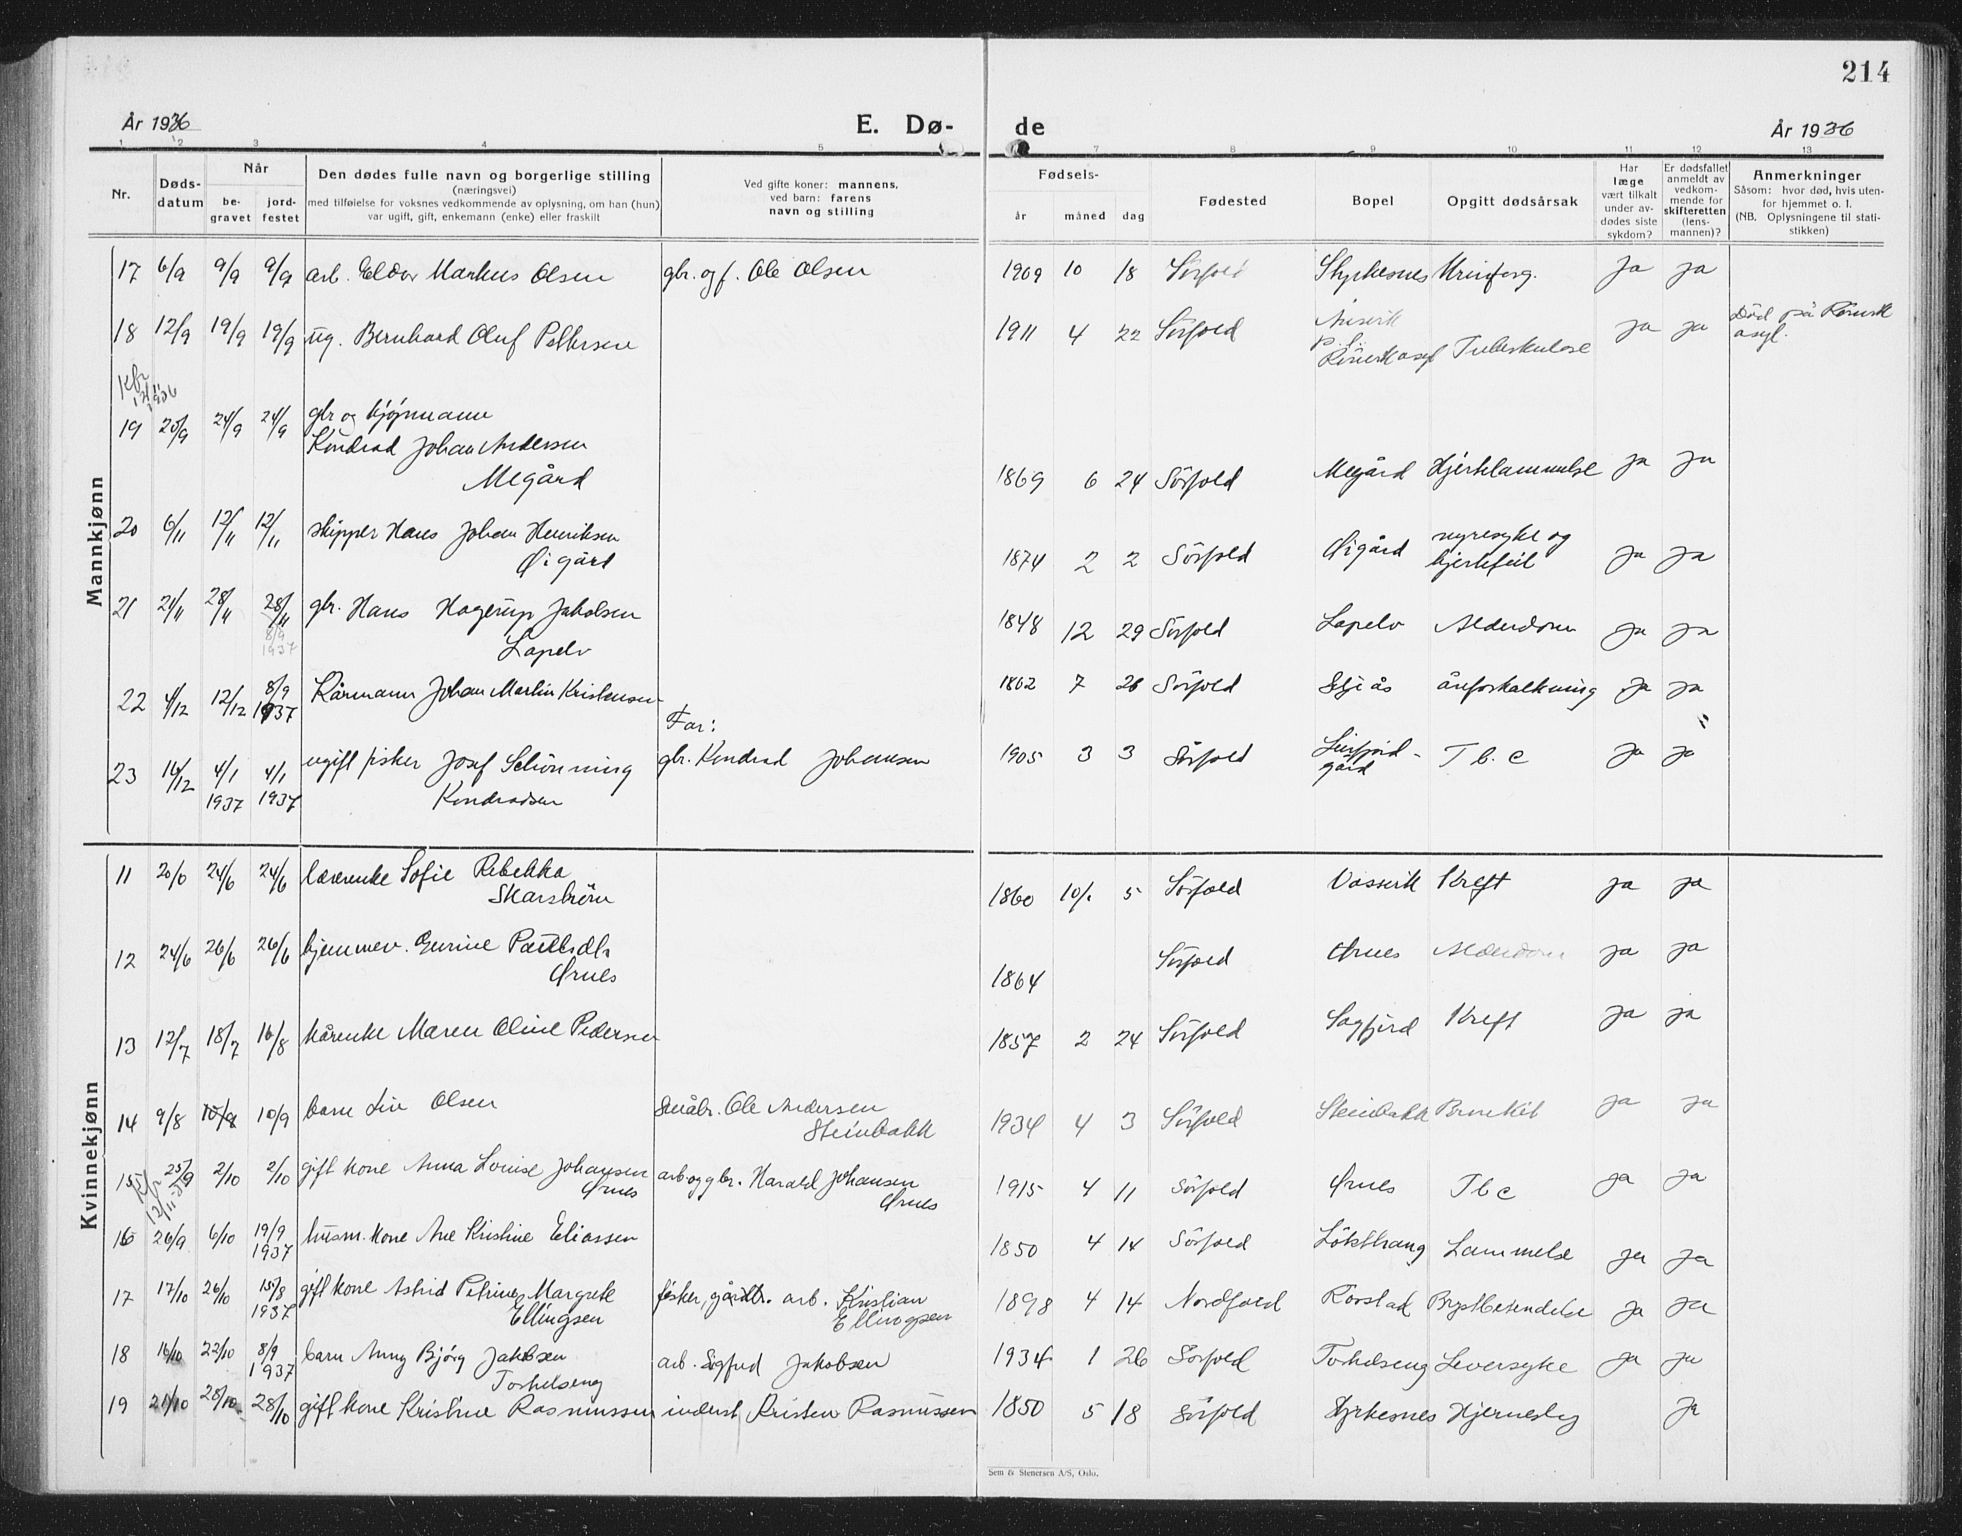 214
År 1936
E. Dø-
de
År 1936
1 2 3 4 5 7 8 9 10 11 12 13
Nr.
Døds-
datum
Når
be-
gravet
jord-
festet
Den dødes fulle navn og borgerlige stilling
(næringsvei)
med tilføielse for voksnes vedkommende av oplysning, om han (hun)
var ugift, gift, enkemann (enke) eller fraskilt
Ved gifte koner: mannens,
ved barn: farens
navn og stilling
Fødsels-
år måned dag
Fødested
Bopel
Opgitt dødsårsak
Har
læge
vært tilkalt
under av-
dødes siste
sykdom?
Er dødsfallet
anmeldt av
vedkom-
mende for
skifteretten
(lens-
mannen)?
Anmerkninger
Såsom: hvor død, hvis uten-
for hjemmet o. l.
(NB. Oplysningene til stati-
stikken)
Mannkjønn
17 6/9 9/9 9/9 arb. Eldor Markus Olsen gbr. og f. Ole Olsen 1909 10 18 Sørfold Styrkesnes Urinforg. Ja ja
18 12/9 19/9 19/9 ug. Bernhard Oluf Pettersen 1911 4 22 Sørfold Aisvik
Rønvik asyl Tuberkulose ja ja Død på Rønvik
asyl.
19 20/9 24/9 24/9 gbr og kjøpmann
Kondrad Johan Andersen
Megård 1869 6 24 Sörfold Megård Hjertelammelse ja ja
20 6/11 12/11 12/11 skipper Hans Johan Henriksen
Øigård 1874 2 2 Sörfold Øigård nyresyke og
hjertefeil ja ja
21 21/11 28/11 28/11 gbr. Hans Hagerup Jakobsen
8/9
1937
Lapelv 1848 12 29 Sörfold Lapelv Alderdom ja ja
22 4/12 12/12 8/9
1937 Kårmann Johan Martin Kristensen 1862 7 26 Sörfold åreforkalkning ja ja
Far:
23 16/12 4/1
1937 4/1
1937 ugift fisker Josef Schönning
Kondradsen gbr. Kondrad Johansen 1905 3 3 Sörfold Leirfjord-
gård T b. c ja ja
Kvinnekjønn
11 20/6 24/6 24/6 Sofie Rebekka
Skarström 1860 10/. 5 Sörfold Vassvik Kreft ja ja
12 24/6 26/6 26/6 hjemmev. Gurine
Ørnes 1864 Sörfold Ørnes Alderdom ja ja
13 12/7 18/7 16/8 kårenke Maren Oline Pedersen 1857 2 24 Sörfold Sagfjord Kreft ja ja
14 9/8 10/9 10/9 barn Liv Olsen småbr. Ole Andersen
Steinbakk 1934 4 3 Sörfold Steinbakk Bronkit ja ja
15 25/9 2/10 2/10 gift kone Anna Louise Johansen
Ørnes arb. og gbr. Harald Johansen
Ørnes 1915 4 11 Sörfold Ørnes T b c ja ja
16 26/9 6/10 19/9
1937 husm. kone Ane Kristine Eliassen 1850 4 14 Sörfold Lammelse ja ja
17 17/10 26/10 15/8
1937 gift kone Astrid Petrine Margrete
Ellingsen fisker, gårdbr. arb. Kristian
Ellingsen 1898 4 14 Nordfold Rørstad Brystbetendelse ja ja
18 16/10 22/10 8/9
1937 barn Anny Bjørg Jakobsen
Torkelseng arb. Sigfred Jakobsen 1934 1 26 Sörfold Torkelseng Leversyke ja ja
19 21/10 28/10 28/10 gift kone Kristine Rasmussen inderst Kristen Rasmussen 1850 5 18 Sörfold Styrkesnes Hjerneslag ja
Sem & Stenersen A/S, Oslo.